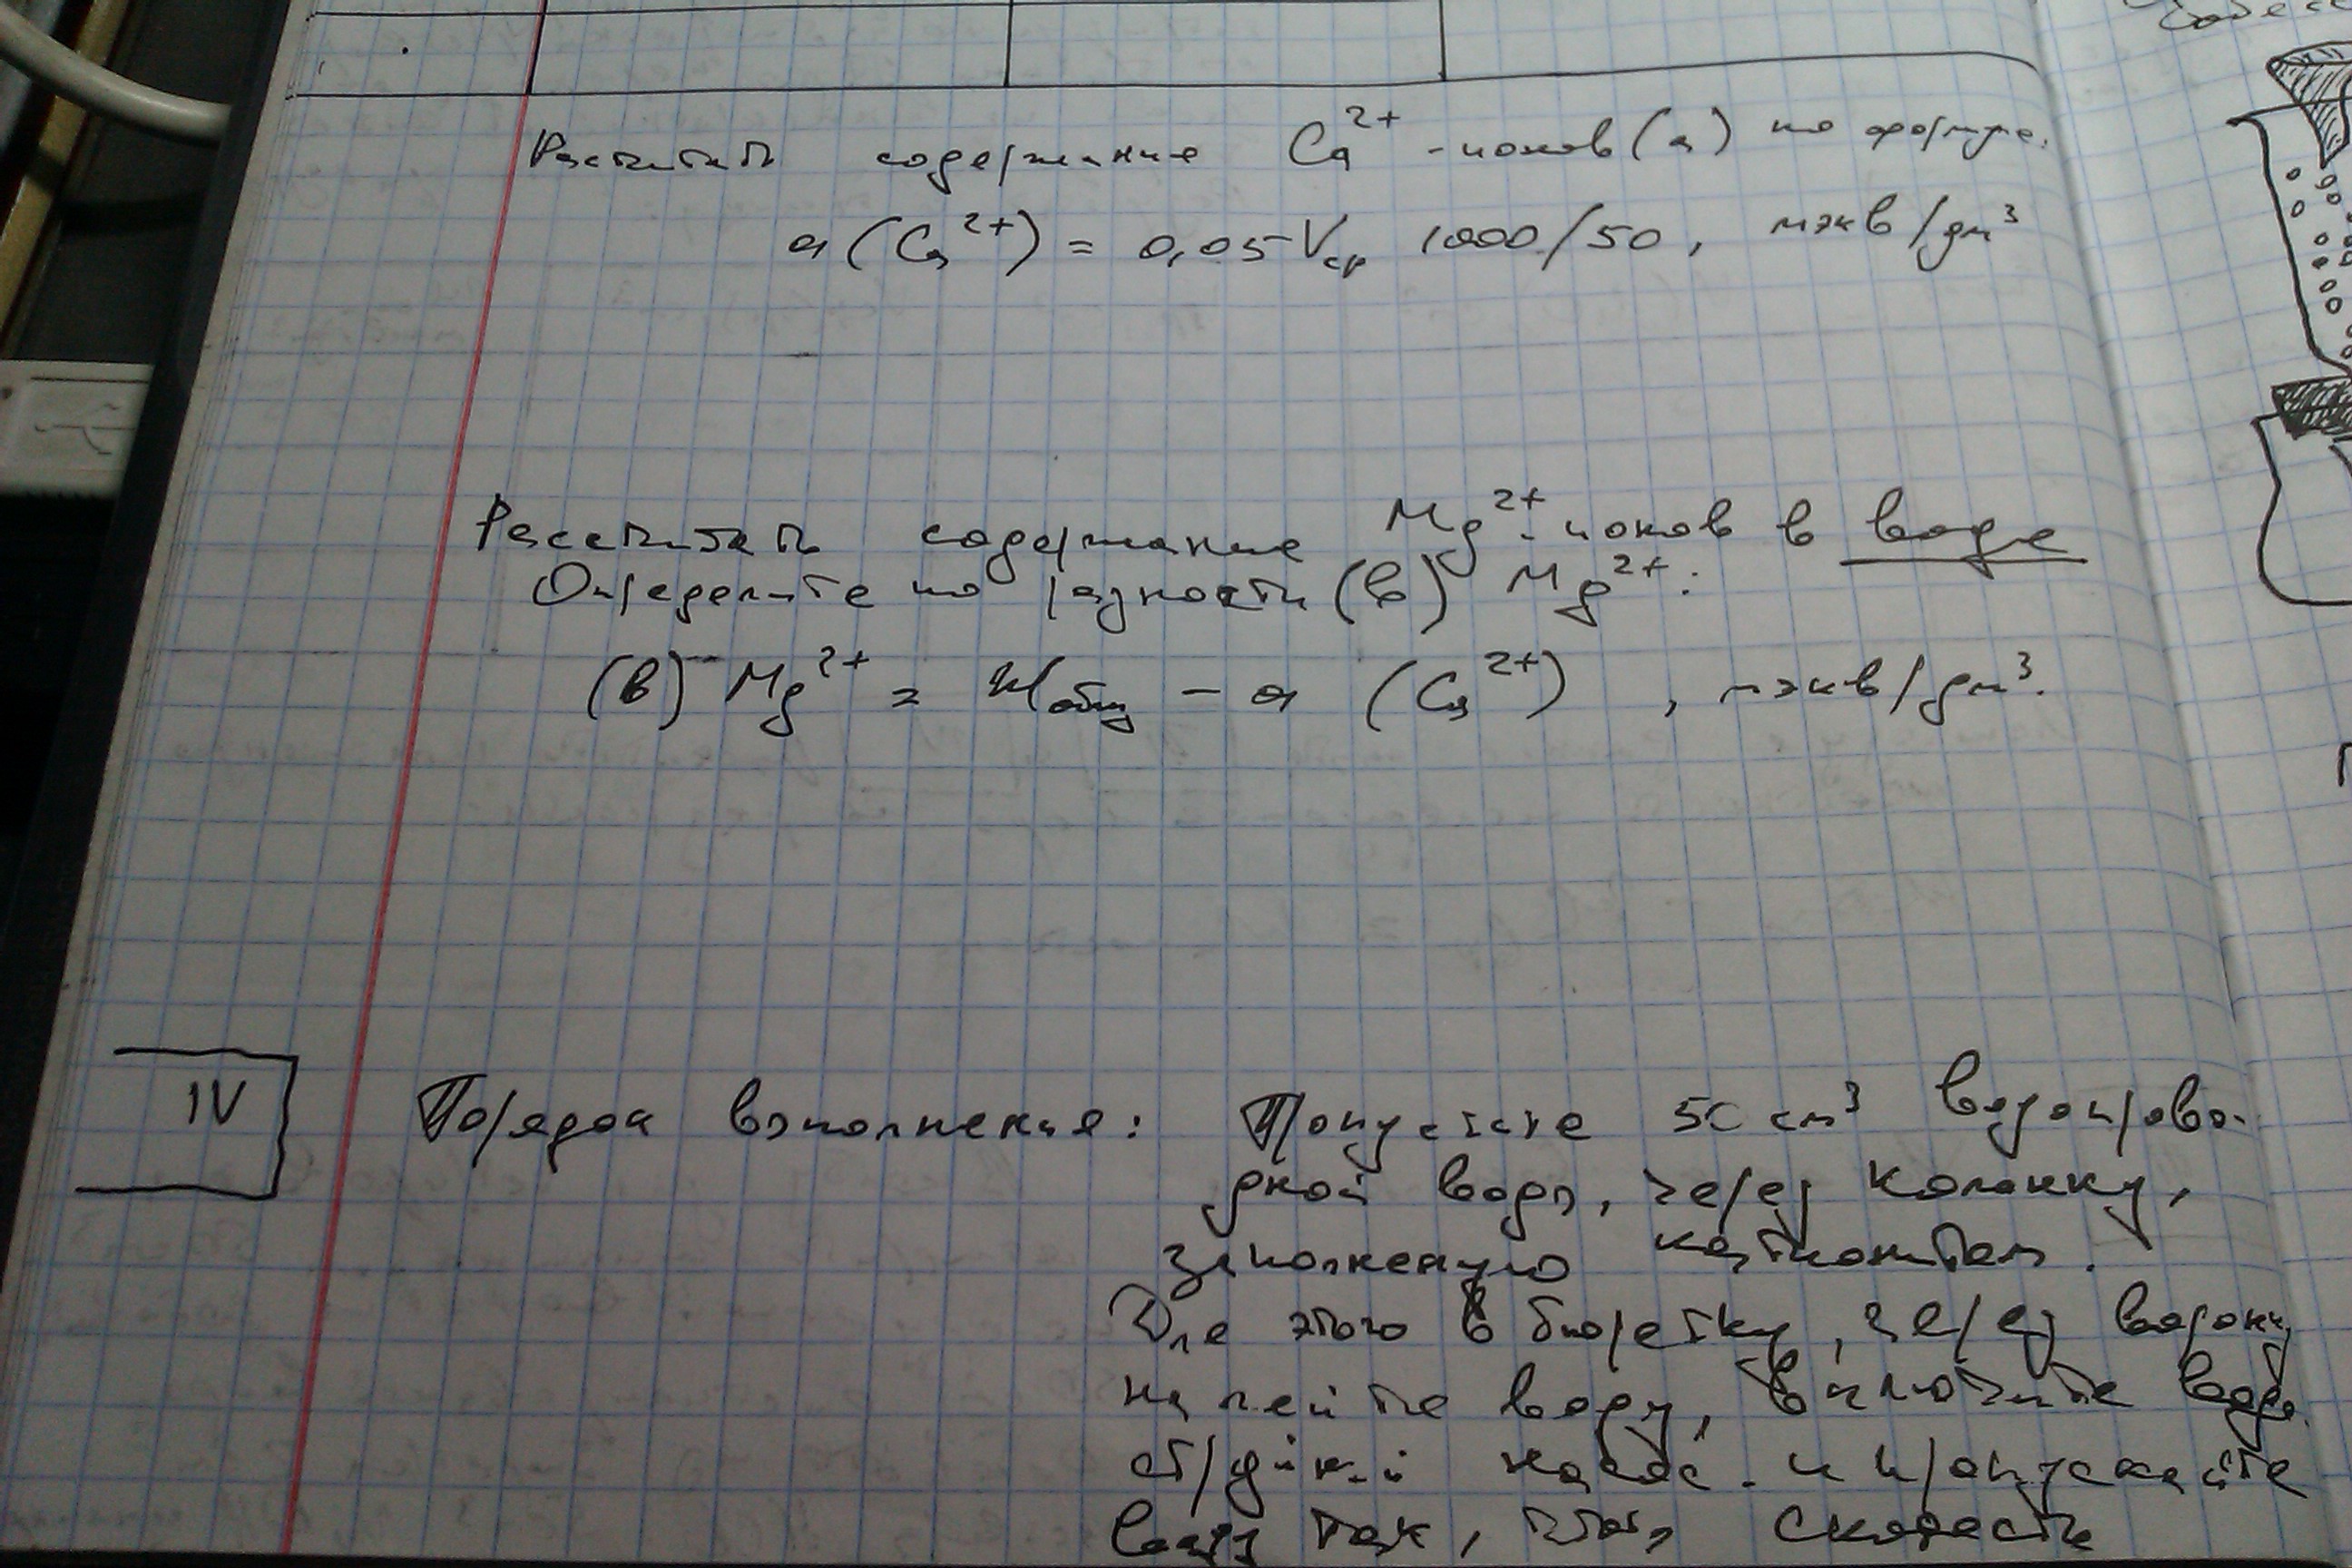 Рассчитать содержание Ca²⁺ -ионов (а) по формуле:
а (Ca²⁺) = 0,05 Vср 1000/50, мэкв/дм³
Рассчитать содержание Mg²⁺-ионов в воде
Определите по разности (в) Mg²⁺:
(в) Mg²⁺ = Жобщ - а (Ca²⁺) , мэкв/дм³.
IV Порядок выполнения: Пропустите 50 см³ водопрово-
дной воды, через колонку,
заполненную катионитом.
Для этого в бюретку, через воронку
налейте воду, включите водо
струйный насос. и пропускайте
воду так, чтобы скорость